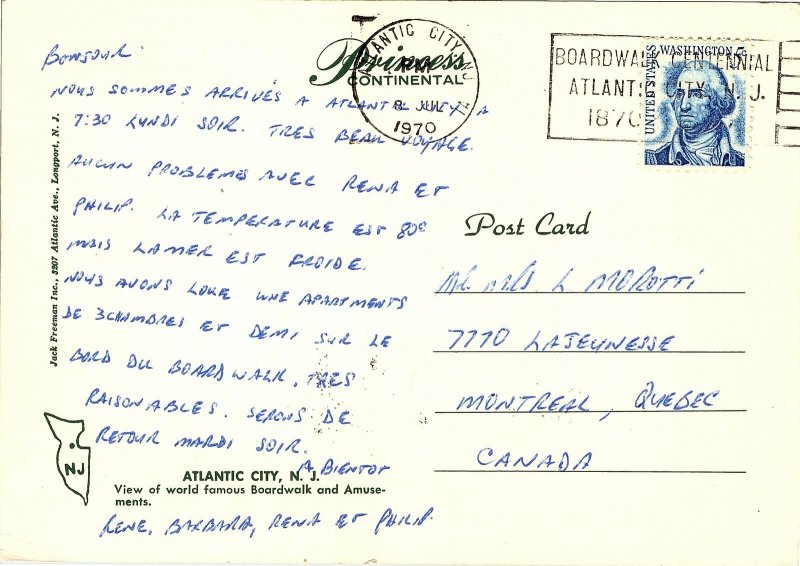 BONJOUR
NOUS SOMMES ARRIVÉS A ATLANTIC CITY A
7:30 LUNDI SOIR. TRES BEAU VOYAGE.
AUCUN PROBLEMES AVEC RENA ET
PHILIP. LA TEMPERATURE EST 80°
MAIS LA MER EST FROIDE.
NOUS AVONS LOUE UNE APARTMENTS
DE 3 CHAMBRES ET DEMI SUR LE
BORD DU BOARDWALK, TRES
RAISONABLES. SERONS DE
RETOUR MARDI SOIR.
A BIENTOT
RENE, BARBARA, RENA ET PHILIP.
Princess
CONTINENTAL
ATLANTIC CITY, N.J.
8 JUL
1970
BOARDWALK CENTENNIAL
ATLANTIC CITY, N. J.
1870
UNITED STATES
WASHINGTON 5c
Post Card
M. & MRS. L MOROTTI
7770 LAJEUNESSE
MONTREAL, QUEBEC
CANADA
Jack Freeman Inc., 3207 Atlantic Ave., Longport, N. J.
NJ
ATLANTIC CITY, N. J.
View of world famous Boardwalk and Amuse-
ments.